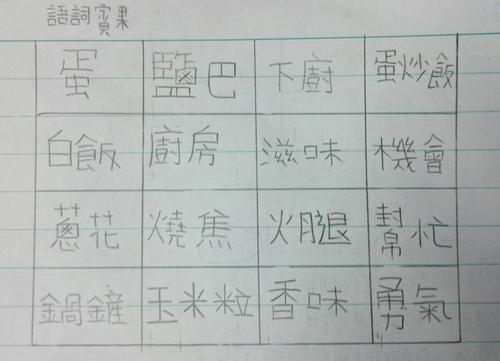 語詞賓果
蛋 鹽巴 下廚 蛋炒飯
白飯 廚房 滋味 機會
蔥花 燒焦 火腿 幫忙
鍋鏟 玉米粒 香味 勇氣